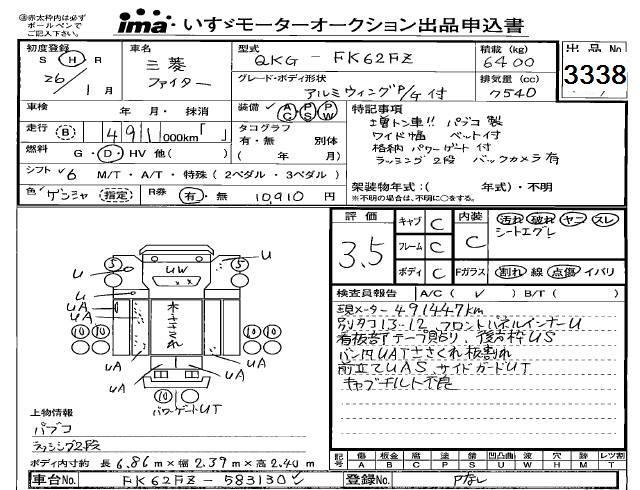 ※赤太枠内は必ずボールペンでご記入下さい。
ima いすゞモーターオークション出品申込書
初度登録 S H R 26/1月
車名 三菱 ファイター
型式 QKG - FK62FZ
積載(kg) 6400
出品No 3338
グレード・ボディ形状 アルミウィングP/G付
排気量(cc) 7540
車検 年 月・ 抹消
装備 AC PS PW
特記事項
増トン車!! パブコ製
ワイド幅 ベット付
格納パワーゲート付
ラッシング2段 バックカメラ有
走行(B) 491,000km「 」
タコグラフ 有・無 別体 ( 年 月)
燃料 G・D・HV 他( )
シフト 6 M/T・A/T・特殊(2ペダル・3ペダル)
架装物年式:( 年式)・不明
※不明の場合は、不明に○をする。
色 ゲンシャ (指定)
R券 有・無 10,910 円
評価 3.5
キャブ C
フレーム C
ボディ C
内装 C
汚れ 破れ ヤニ スレ
シートエグレ
Fガラス 割れ 線 点傷 イバリ
検査員報告 A/C( ✓ ) B/T( )
現メーター491447km
別タコ13-12、フロントパネルインナーU
看板部テープ貼り、後方枠US
バン内UATささくれ板割れ
前立てUAS、サイドガードUT
キャブチルト不良
U U
5 5
UW
U
UA
UA
木ささくれ
10 10 10 10
UA UA UA UA
パワーゲートUT
上物情報
パブコ
ラッシング2段
ボディ内寸約 長6.86m×幅2.39m×高2.40m
記号 傷A 板金B 腐C 塗P 錆S 凹凸曲U 波W 穴H 跡M 欠T レツ割
車台No. FK62FZ - 583130
登録No. Pなし